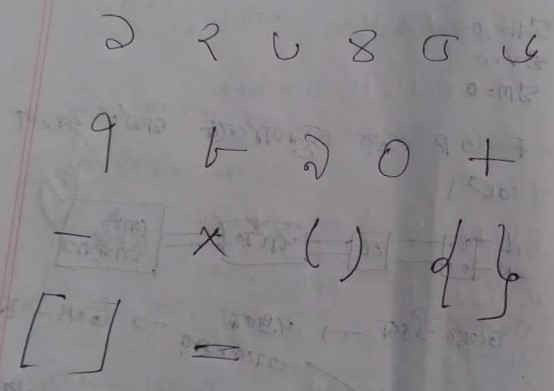 ১ ২ ৩ ৪ ৫ ৬
৭ ৮ ৯ ০ +
− × ( ) { }
[ ] =